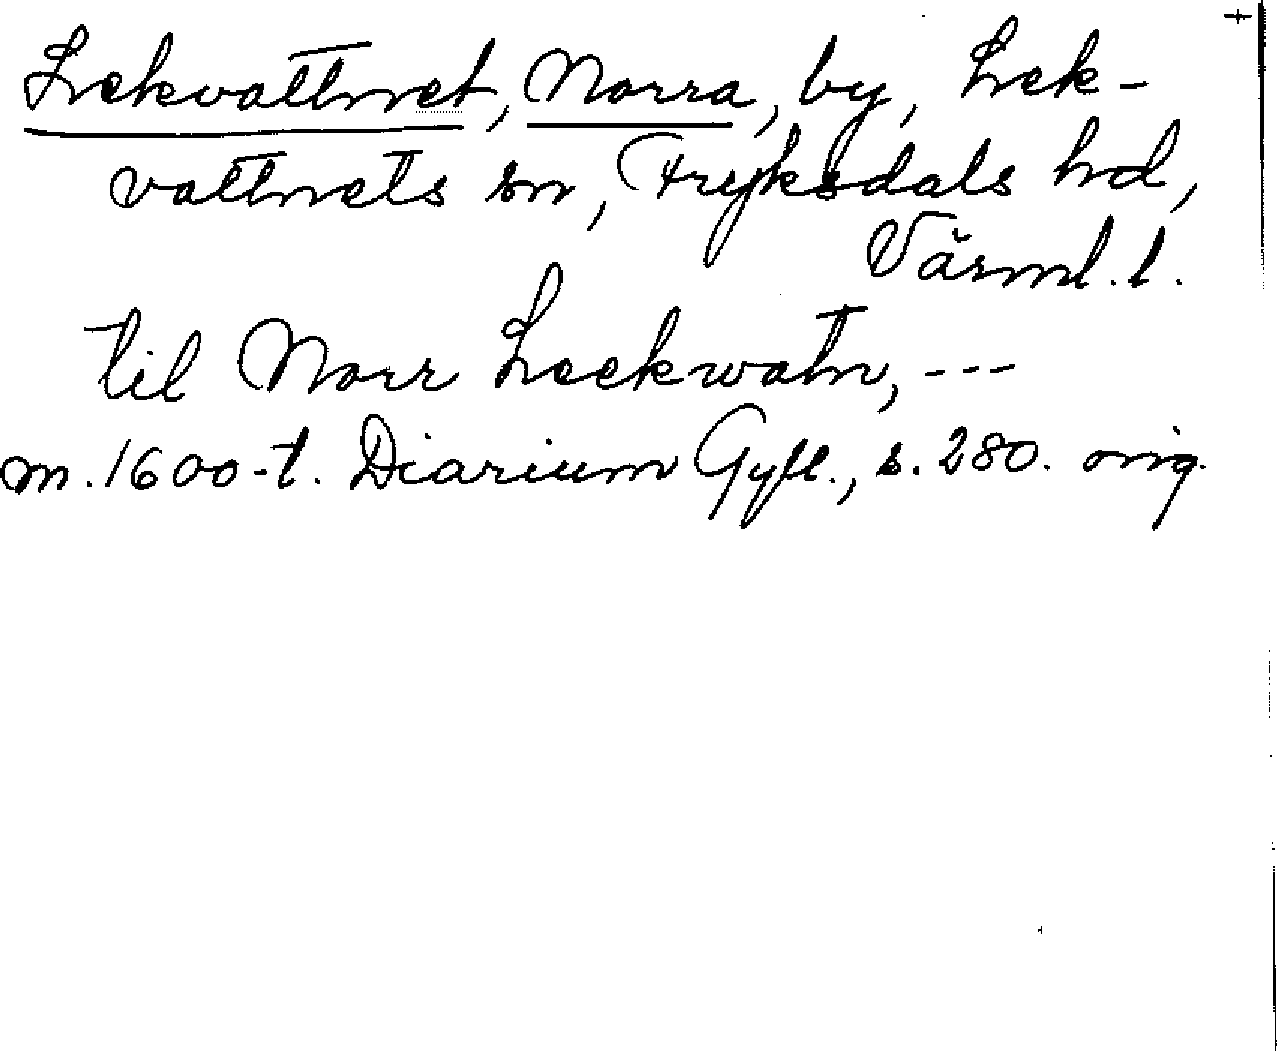 Lekvattnet, Norra, by, Lek-
vattnets sn, Fryksdals hd,
Värml. l.
til Norr Leekwatn, ---
m. 1600-t. Diarium Gyll., s. 280. orig.